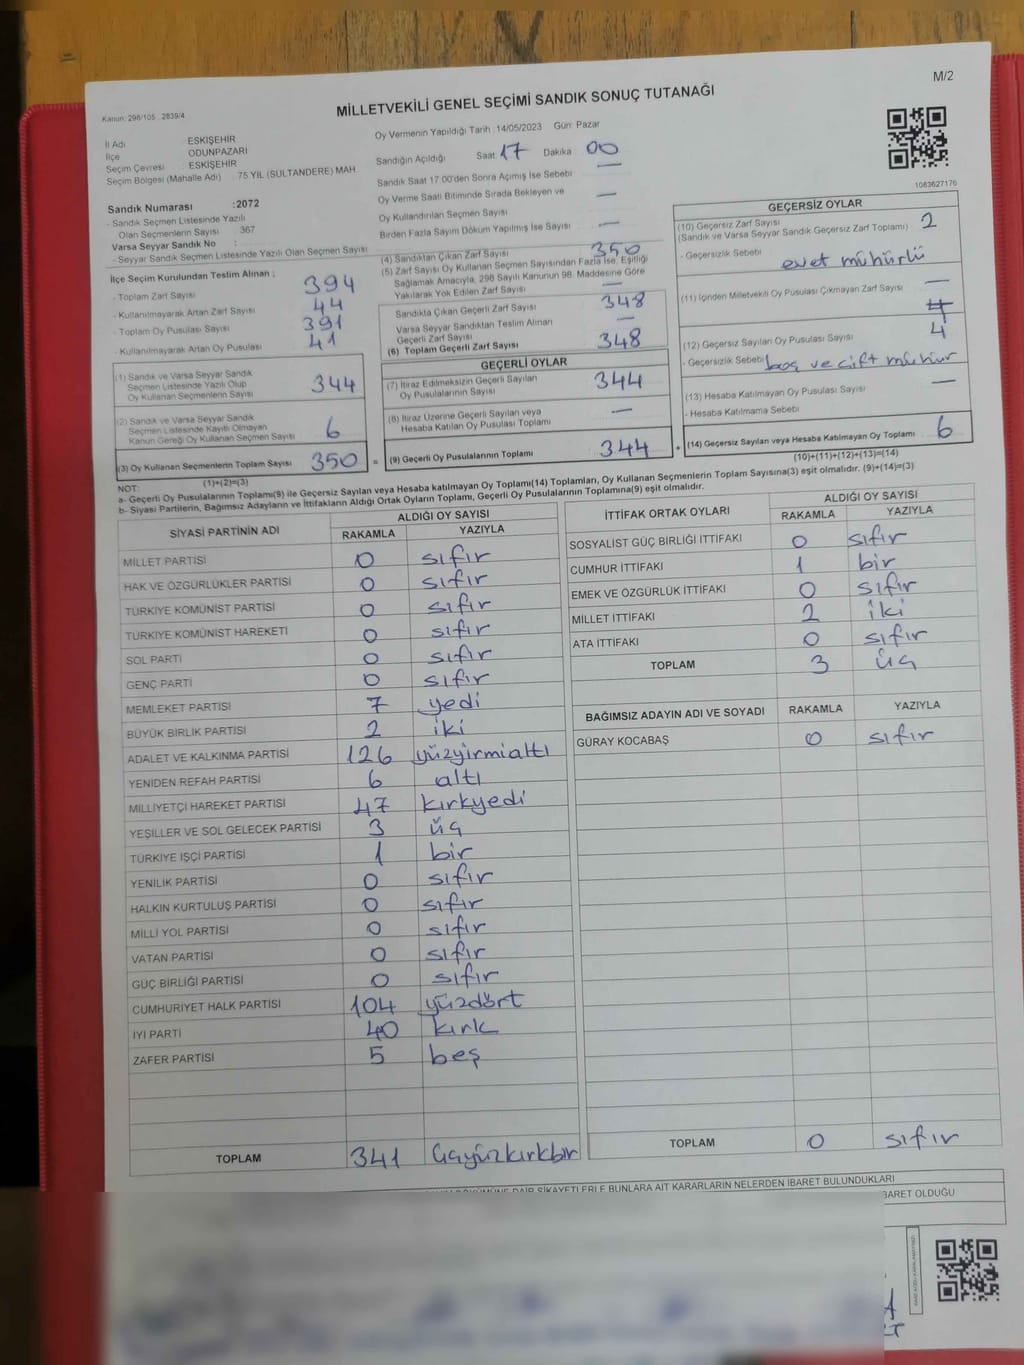 M/2
Kanun: 298/105 . 2839/4
MİLLETVEKİLİ GENEL SEÇİMİ SANDIK SONUÇ TUTANAĞI
İl Adı ESKİŞEHİR
İlçe ODUNPAZARI
Seçim Çevresi ESKİŞEHİR
Seçim Bölgesi (Mahalle Adı) 75.YIL (SULTANDERE) MAH.
Oy Vermenin Yapıldığı Tarih :14/05/2023 Gün: Pazar
Sandığın Açıldığı Saat 17 Dakika 00
Sandık Saat 17:00'den Sonra Açılmış İse Sebebi
Oy Verme Saati Bitiminde Sırada Bekleyen ve —
Oy Kullandırılan Seçmen Sayısı
Birden Fazla Sayım Döküm Yapılmış İse Sayısı —
1083627176
Sandık Numarası :2072
- Sandık Seçmen Listesinde Yazılı
Olan Seçmenlerin Sayısı : 367
Varsa Seyyar Sandık No :
- Seyyar Sandık Seçmen Listesinde Yazılı Olan Seçmen Sayısı
İlçe Seçim Kurulundan Teslim Alınan :
- Toplam Zarf Sayısı 394
- Kullanılmayarak Artan Zarf Sayısı 44
- Toplam Oy Pusulası Sayısı 391
- Kullanılmayarak Artan Oy Pusulası 41
(1) Sandık ve Varsa Seyyar Sandık
Seçmen Listesinde Yazılı Olup
Oy Kullanan Seçmenlerin Sayısı 344
(2) Sandık ve Varsa Seyyar Sandık
Seçmen Listesinde Kayıtlı Olmayan
Kanun Gereği Oy Kullanan Seçmen Sayısı 6
(3) Oy Kullanan Seçmenlerin Toplam Sayısı 350
(1)+(2)=(3)
(4) Sandıktan Çıkan Zarf Sayısı 350
(5) Zarf Sayısı Oy Kullanan Seçmen Sayısından Fazla İse, Eşitliği
Sağlamak Amacıyla, 298 Sayılı Kanunun 98. Maddesine Göre
Yakılarak Yok Edilen Zarf Sayısı —
Sandıkta Çıkan Geçerli Zarf Sayısı 348
Varsa Seyyar Sandıktan Teslim Alınan
Geçerli Zarf Sayısı —
(6) Toplam Geçerli Zarf Sayısı 348
GEÇERLİ OYLAR
(7) İtiraz Edilmeksizin Geçerli Sayılan
Oy Pusulalarının Sayısı 344
(8) İtiraz Üzerine Geçerli Sayılan veya
Hesaba Katılan Oy Pusulası Toplamı —
= (9) Geçerli Oy Pusulalarının Toplamı 344
GEÇERSİZ OYLAR
(10) Geçersiz Zarf Sayısı 2
(Sandık ve Varsa Seyyar Sandık Geçersiz Zarf Toplamı)
- Geçersizlik Sebebi evet mühürlü
(11) İçinden Milletvekili Oy Pusulası Çıkmayan Zarf Sayısı —
(12) Geçersiz Sayılan Oy Pusulası Sayısı 4
- Geçersizlik Sebebi boş ve çift mühür
(13) Hesaba Katılmayan Oy Pusulası Sayısı —
- Hesaba Katılmama Sebebi
+ (14) Geçersiz Sayılan veya Hesaba Katılmayan Oy Toplamı 6
(10)+(11)+(12)+(13)=(14)
NOT:
a- Geçerli Oy Pusulalarının Toplamı(9) ile Geçersiz Sayılan veya Hesaba katılmayan Oy Toplamı(14) Toplamları, Oy Kullanan Seçmenlerin Toplam Sayısına(3) eşit olmalıdır. (9)+(14)=(3)
b- Siyasi Partilerin, Bağımsız Adayların ve İttifakların Aldığı Ortak Oyların Toplamı, Geçerli Oy Pusulalarının Toplamına(9) eşit olmalıdır.
SİYASİ PARTİNİN ADI ALDIĞI OY SAYISI
RAKAMLA YAZIYLA
MİLLET PARTİSİ 0 sıfır
HAK VE ÖZGÜRLÜKLER PARTİSİ 0 sıfır
TÜRKİYE KOMÜNİST PARTİSİ 0 sıfır
TÜRKİYE KOMÜNİST HAREKETİ 0 sıfır
SOL PARTİ 0 sıfır
GENÇ PARTİ 0 sıfır
MEMLEKET PARTİSİ 7 yedi
BÜYÜK BİRLİK PARTİSİ 2 iki
ADALET VE KALKINMA PARTİSİ 126 yüzyirmialtı
YENİDEN REFAH PARTİSİ 6 altı
MİLLİYETÇİ HAREKET PARTİSİ 47 kırkyedi
YEŞİLLER VE SOL GELECEK PARTİSİ 3 üç
TÜRKİYE İŞÇİ PARTİSİ 1 bir
YENİLİK PARTİSİ 0 sıfır
HALKIN KURTULUŞ PARTİSİ 0 sıfır
MİLLİ YOL PARTİSİ 0 sıfır
VATAN PARTİSİ 0 sıfır
GÜÇ BİRLİĞİ PARTİSİ 0 sıfır
CUMHURİYET HALK PARTİSİ 104 yüzdört
İYİ PARTİ 40 kırk
ZAFER PARTİSİ 5 beş
TOPLAM 341 üçyüzkırkbir
İTTİFAK ORTAK OYLARI ALDIĞI OY SAYISI
RAKAMLA YAZIYLA
SOSYALİST GÜÇ BİRLİĞİ İTTİFAKI 0 sıfır
CUMHUR İTTİFAKI 1 bir
EMEK VE ÖZGÜRLÜK İTTİFAKI 0 sıfır
MİLLET İTTİFAKI 2 iki
ATA İTTİFAKI 0 sıfır
TOPLAM 3 üç
BAĞIMSIZ ADAYIN ADI VE SOYADI RAKAMLA YAZIYLA
GÜRAY KOCABAŞ 0 sıfır
TOPLAM 0 sıfır
DÖKÜMÜNE DAİR ŞİKAYETLERLE BUNLARA AİT KARARLARIN NELERDEN İBARET BULUNDUKLARI
BARET OLDUĞU